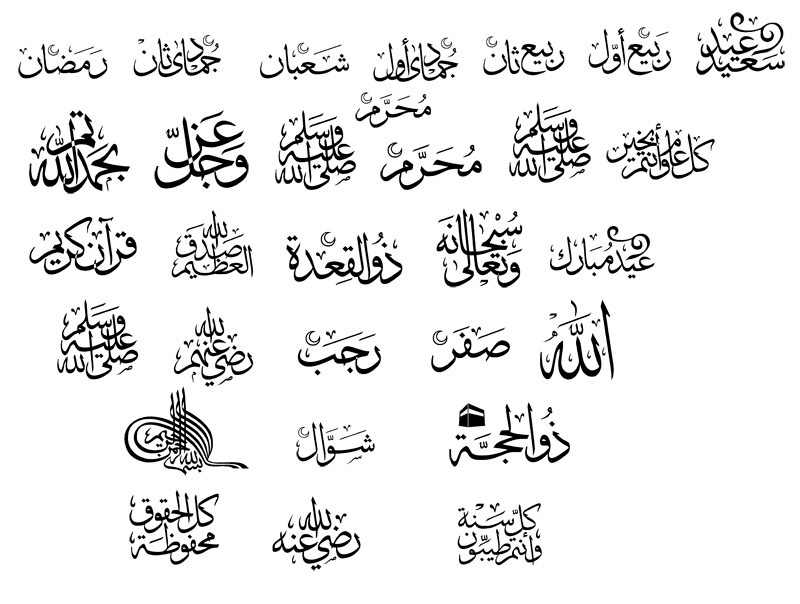 عيد سعيد
ربيع أول
ربيع ثان
جمادى أول
شعبان
جمادى ثان
رمضان
محرم
كل عام وأنتم بخير
صلى الله عليه وسلم
محرم
صلى الله عليه وسلم
عز وجل
تم بحمد الله
عيد مبارك
سبحانه وتعالى
ذو القعدة
صدق الله العظيم
قرآن كريم
الله
صفر
رجب
رضي الله عنهم
صلى الله عليه وسلم
ذو الحجة
شوال
بسم الله الرحمن الرحيم
كل سنة وأنتم طيبون
رضي الله عنه
كل الحقوق محفوظة